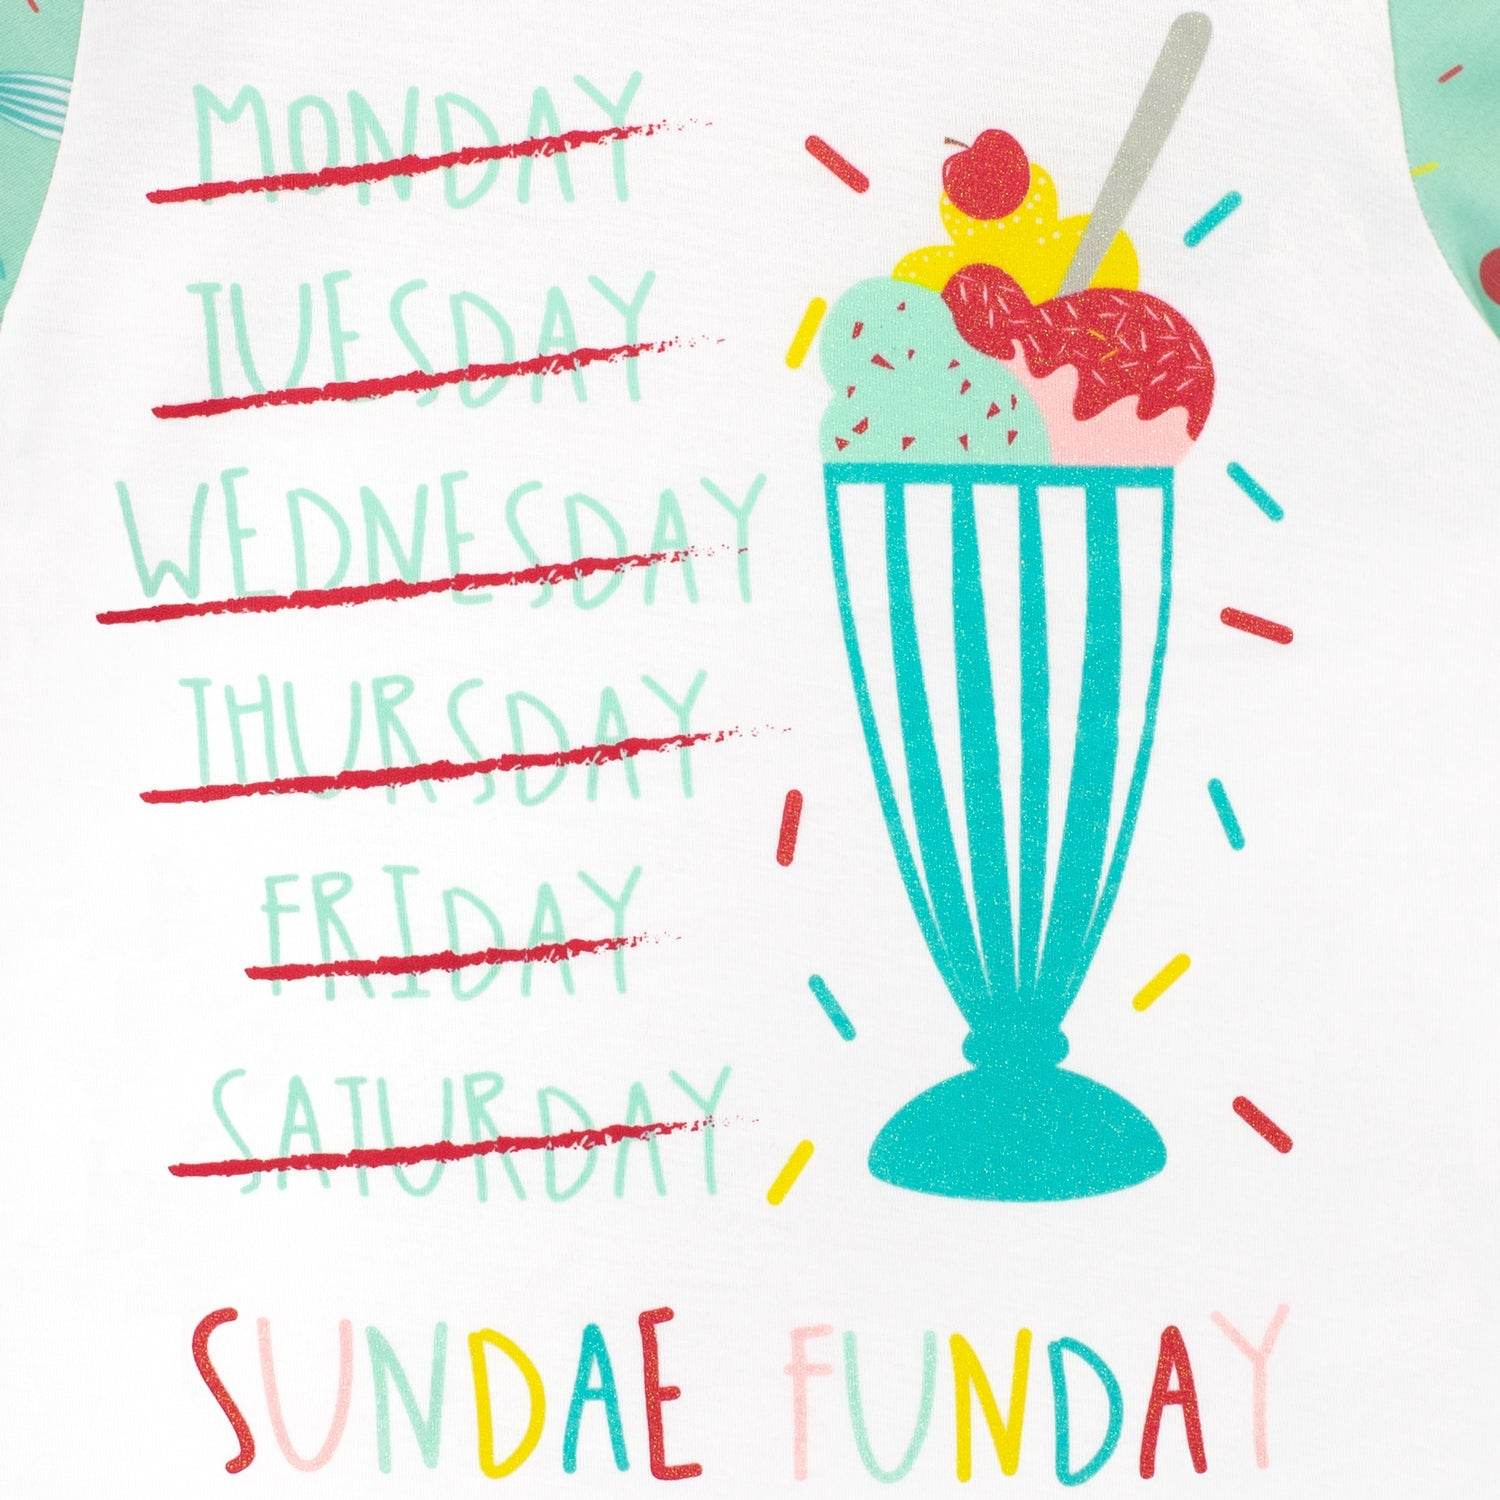 MONDAY
TUESDAY
WEDNESDAY
THURSDAY
FRIDAY
SATURDAY
SUNDAE FUNDAY